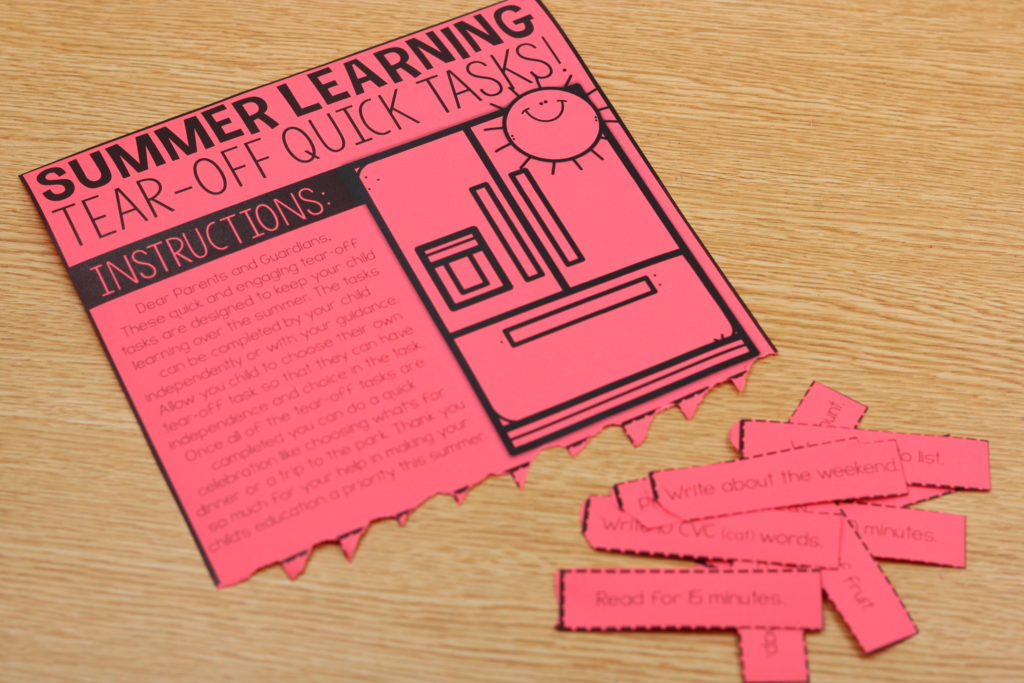 SUMMER LEARNING
TEAR-OFF QUICK TASKS!
INSTRUCTIONS:
Dear Parents and Guardians,
These quick and engaging tear-off
tasks are designed to keep your child
learning over the summer. The tasks
can be completed by your child
independently or with your guidance.
Allow you child to choose their own
tear-off task so that they can have
independence and choice in the task.
Once all of the tear-off tasks are
completed you can do a quick
celebration like choosing what's for
dinner or a trip to the park. Thank you
so much for your help in making your
child's education a priority this summer
o list.
Write about the weekend.
Write 10 CVC (cat) words.
minutes.
fruit.
Read for 15 minutes.